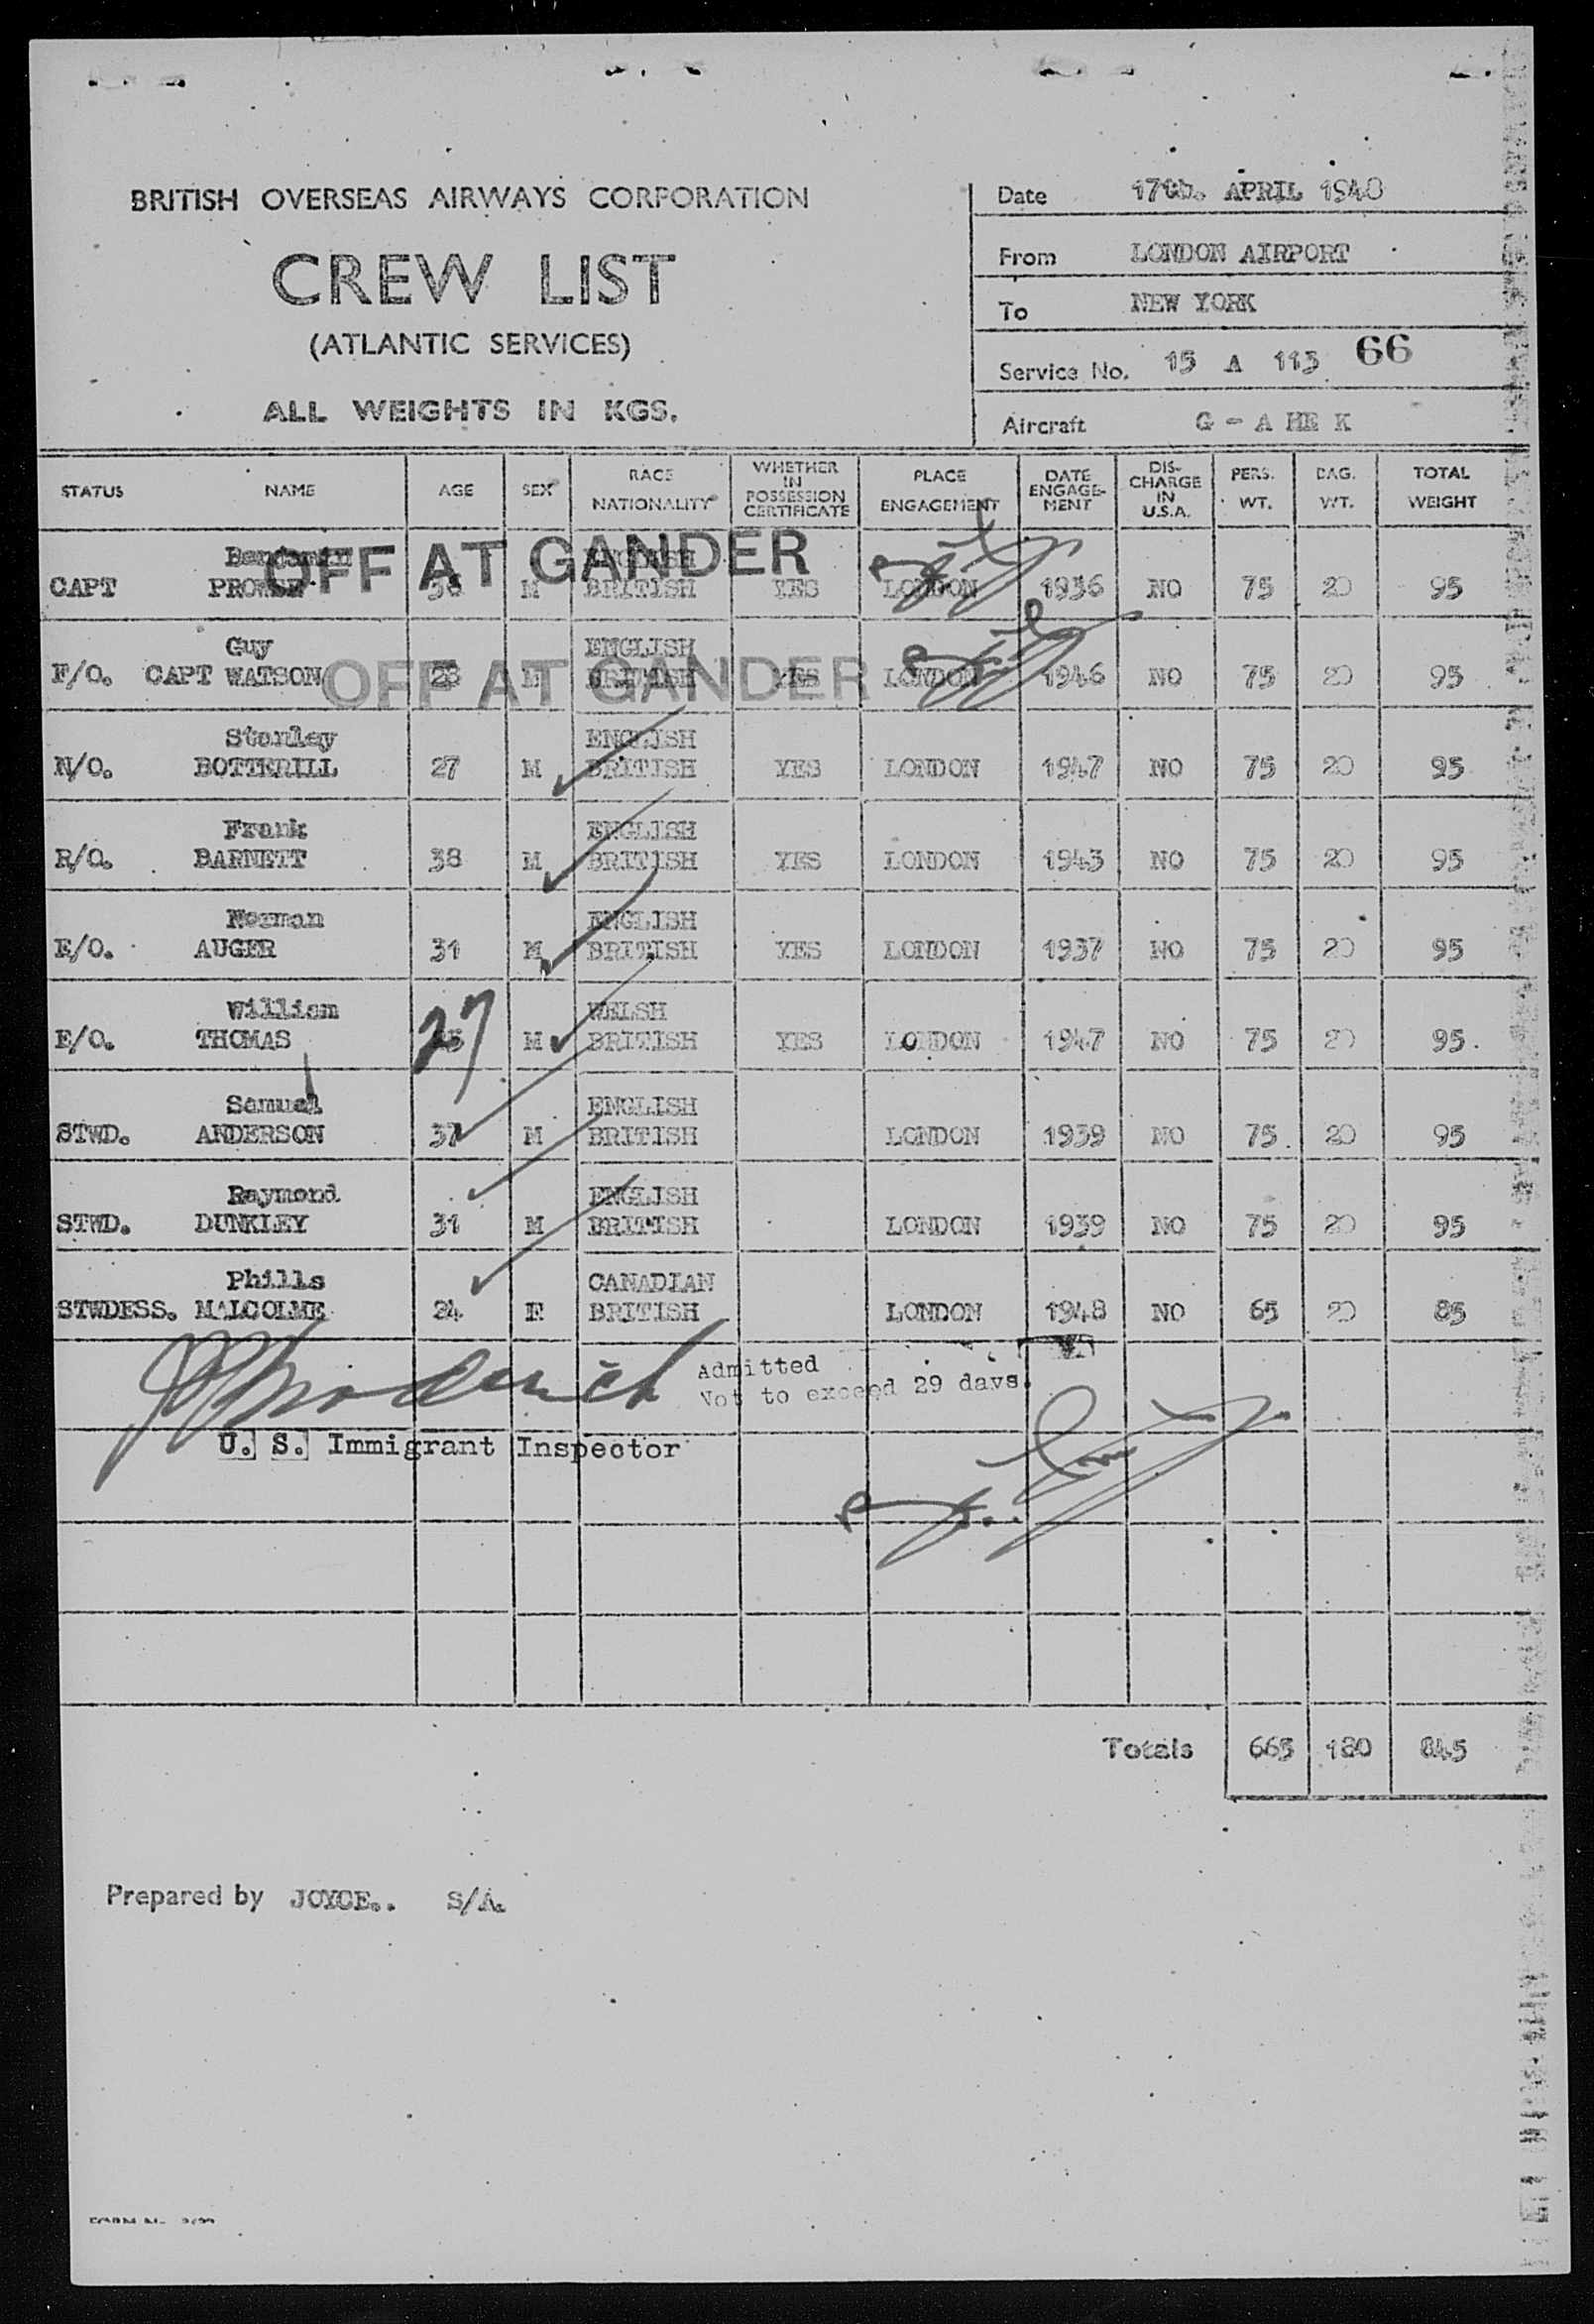 BRITISH OVERSEAS AIRWAYS CORPORATION
CREW LIST
(ATLANTIC SERVICES)
ALL WEIGHTS IN KGS.
Date 17th. APRIL 1948
From LONDON AIRPORT
To NEW YORK
Service No. 15 A 113 66
Aircraft G - A HE K
STATUS NAME AGE SEX RACE NATIONALITY WHETHER IN POSSESSION CERTIFICATE PLACE ENGAGEMENT DATE ENGAGE-MENT DIS-CHARGE IN U.S.A. PERS. WT. BAG. WT. TOTAL WEIGHT
Benjamin ENGLISH
OFF AT GANDER
CAPT M BRITISH YES LONDON 1936 NO 75 20 95
Guy ENGLISH
F/O. CAPT WATSON 28 M BRITISH YES LONDON 1946 NO 75 20 95
OFF AT GANDER
Stanley ENGLISH
N/O. BOTTERILL 27 M BRITISH YES LONDON 1947 NO 75 20 95
Frank ENGLISH
R/O. BARNETT 38 M BRITISH YES LONDON 1943 NO 75 20 95
Norman ENGLISH
E/O. AUGER 31 M BRITISH YES LONDON 1937 NO 75 20 95
William WELSH
E/O. THOMAS 27 M BRITISH YES LONDON 1947 NO 75 20 95
Samuel ENGLISH
STWD. ANDERSON 37 M BRITISH LONDON 1939 NO 75 20 95
Raymond ENGLISH
STWD. DUNKLEY 31 M BRITISH LONDON 1939 NO 75 20 95
Phills CANADIAN
STWDESS. MALCOLME 24 F BRITISH LONDON 1948 NO 65 20 85
Admitted
Not to exceed 29 days.
U. S. Immigrant Inspector
Totals 665 180 845
Prepared by JOYCE.. S/A.